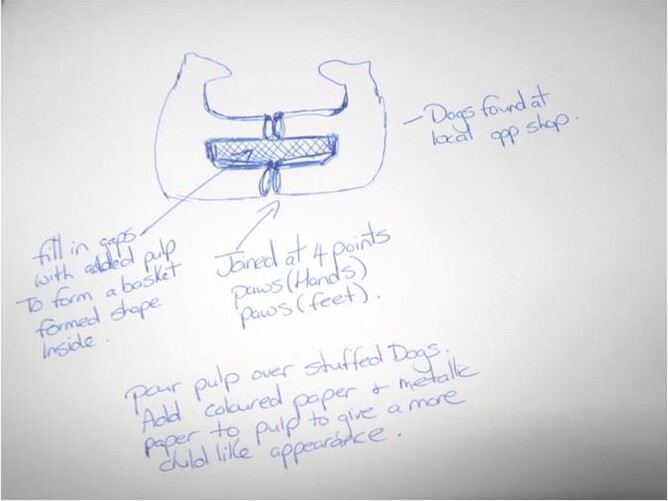 - Dogs found at
local opp shop.
fill in gaps
with added pulp
To form a basket
formed shape
Inside.
Joined at 4 points
paws (Hands)
paws (feet).
pour pulp over stuffed Dogs.
Add coloured paper & metallic
paper to pulp to give a more
child like appearance.